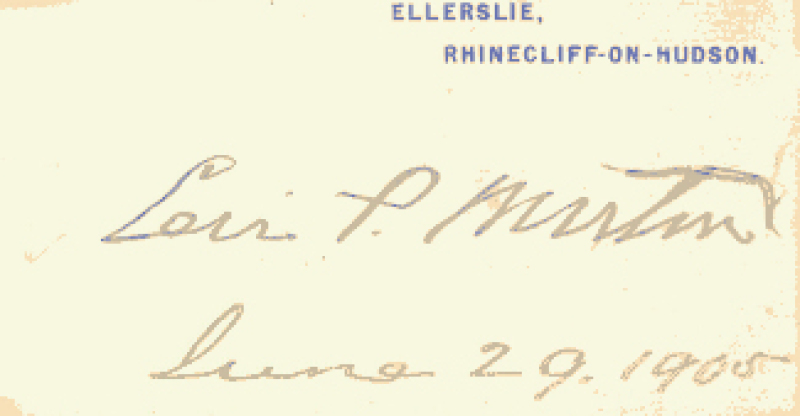 ELLERSLIE,
RHINECLIFF-ON-HUDSON.
Levi P. Morton
June 29. 1905